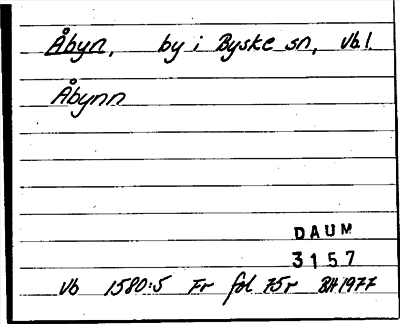 Åbyn, by i Byske sn, Vb.l.
Åbynn
DAUM
3157
Vb 1580:5 Fr fol 75r BH 1977